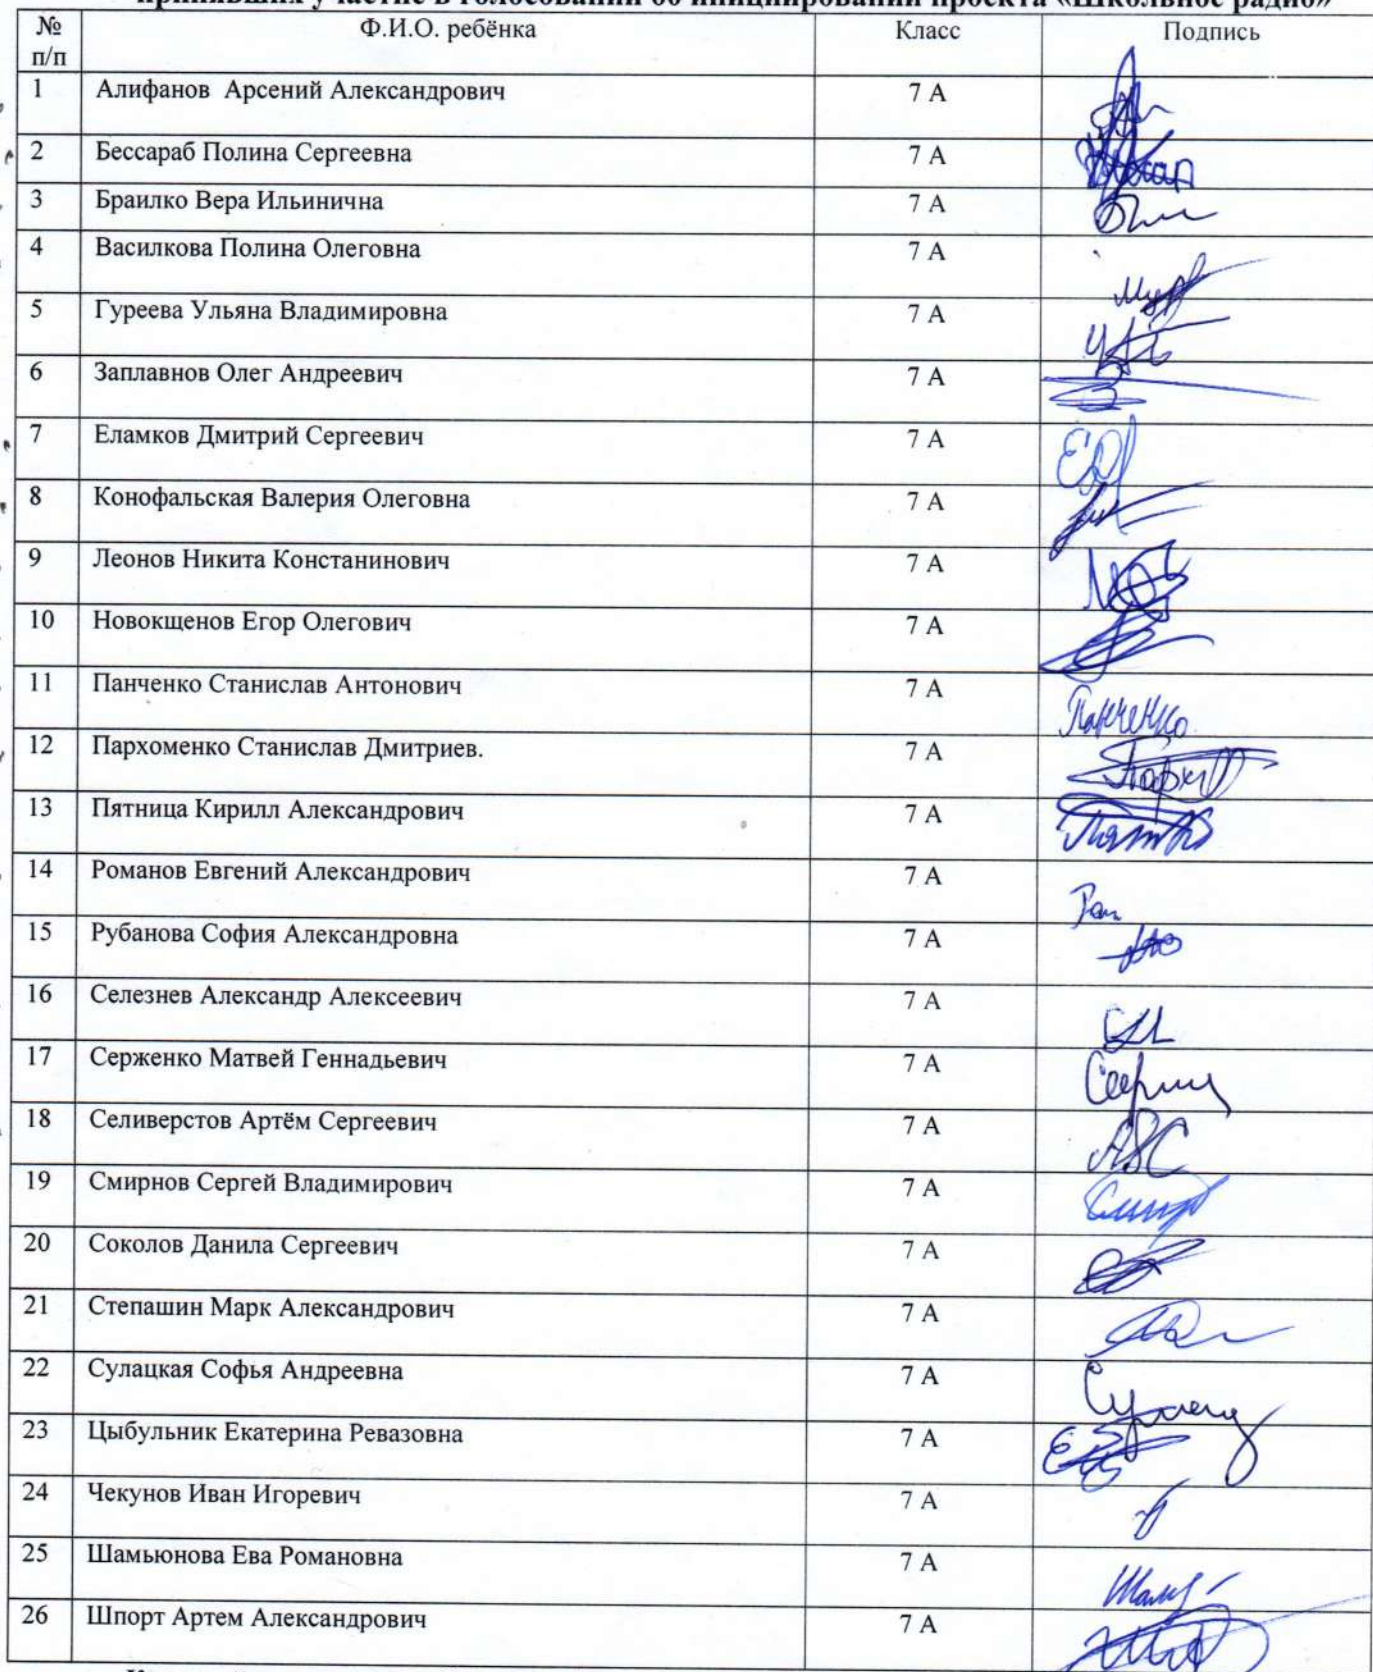 принявших участие в голосовании об инициировании проекта «Школьное радио»
№ п/п Ф.И.О. ребёнка Класс Подпись
1 Алифанов Арсений Александрович 7 А
2 Бессараб Полина Сергеевна 7 А
3 Браилко Вера Ильинична 7 А
4 Василкова Полина Олеговна 7 А
5 Гуреева Ульяна Владимировна 7 А
6 Заплавнов Олег Андреевич 7 А
7 Еламков Дмитрий Сергеевич 7 А
8 Конофальская Валерия Олеговна 7 А
9 Леонов Никита Констанинович 7 А
10 Новокщенов Егор Олегович 7 А
11 Панченко Станислав Антонович 7 А Панченко
12 Пархоменко Станислав Дмитриев. 7 А
13 Пятница Кирилл Александрович 7 А
14 Романов Евгений Александрович 7 А
15 Рубанова София Александровна 7 А
16 Селезнев Александр Алексеевич 7 А
17 Серженко Матвей Геннадьевич 7 А
18 Селиверстов Артём Сергеевич 7 А
19 Смирнов Сергей Владимирович 7 А
20 Соколов Данила Сергеевич 7 А
21 Степашин Марк Александрович 7 А
22 Сулацкая Софья Андреевна 7 А
23 Цыбульник Екатерина Ревазовна 7 А
24 Чекунов Иван Игоревич 7 А
25 Шамьюнова Ева Романовна 7 А
26 Шпорт Артем Александрович 7 А